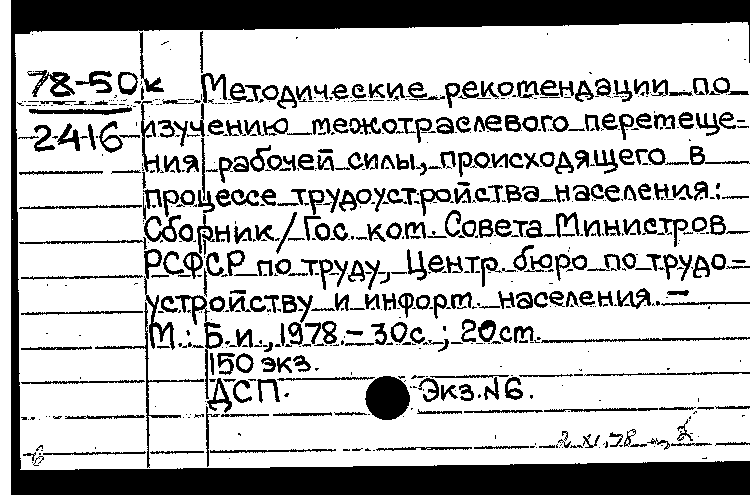 78-50к Методические рекомендации по
2416 изучению межотраслевого перемеще-
ния рабочей силы, происходящего в
процессе трудоустройства населения:
Сборник/Гос. ком. Совета Министров
РСФСР по труду, Центр. бюро по трудо-
устройству и информ. населения. –
М.: Б.и., 1978. – 30с.; 20см.
150 экз.
ДСП. Экз. N6.
2 XI.78
6